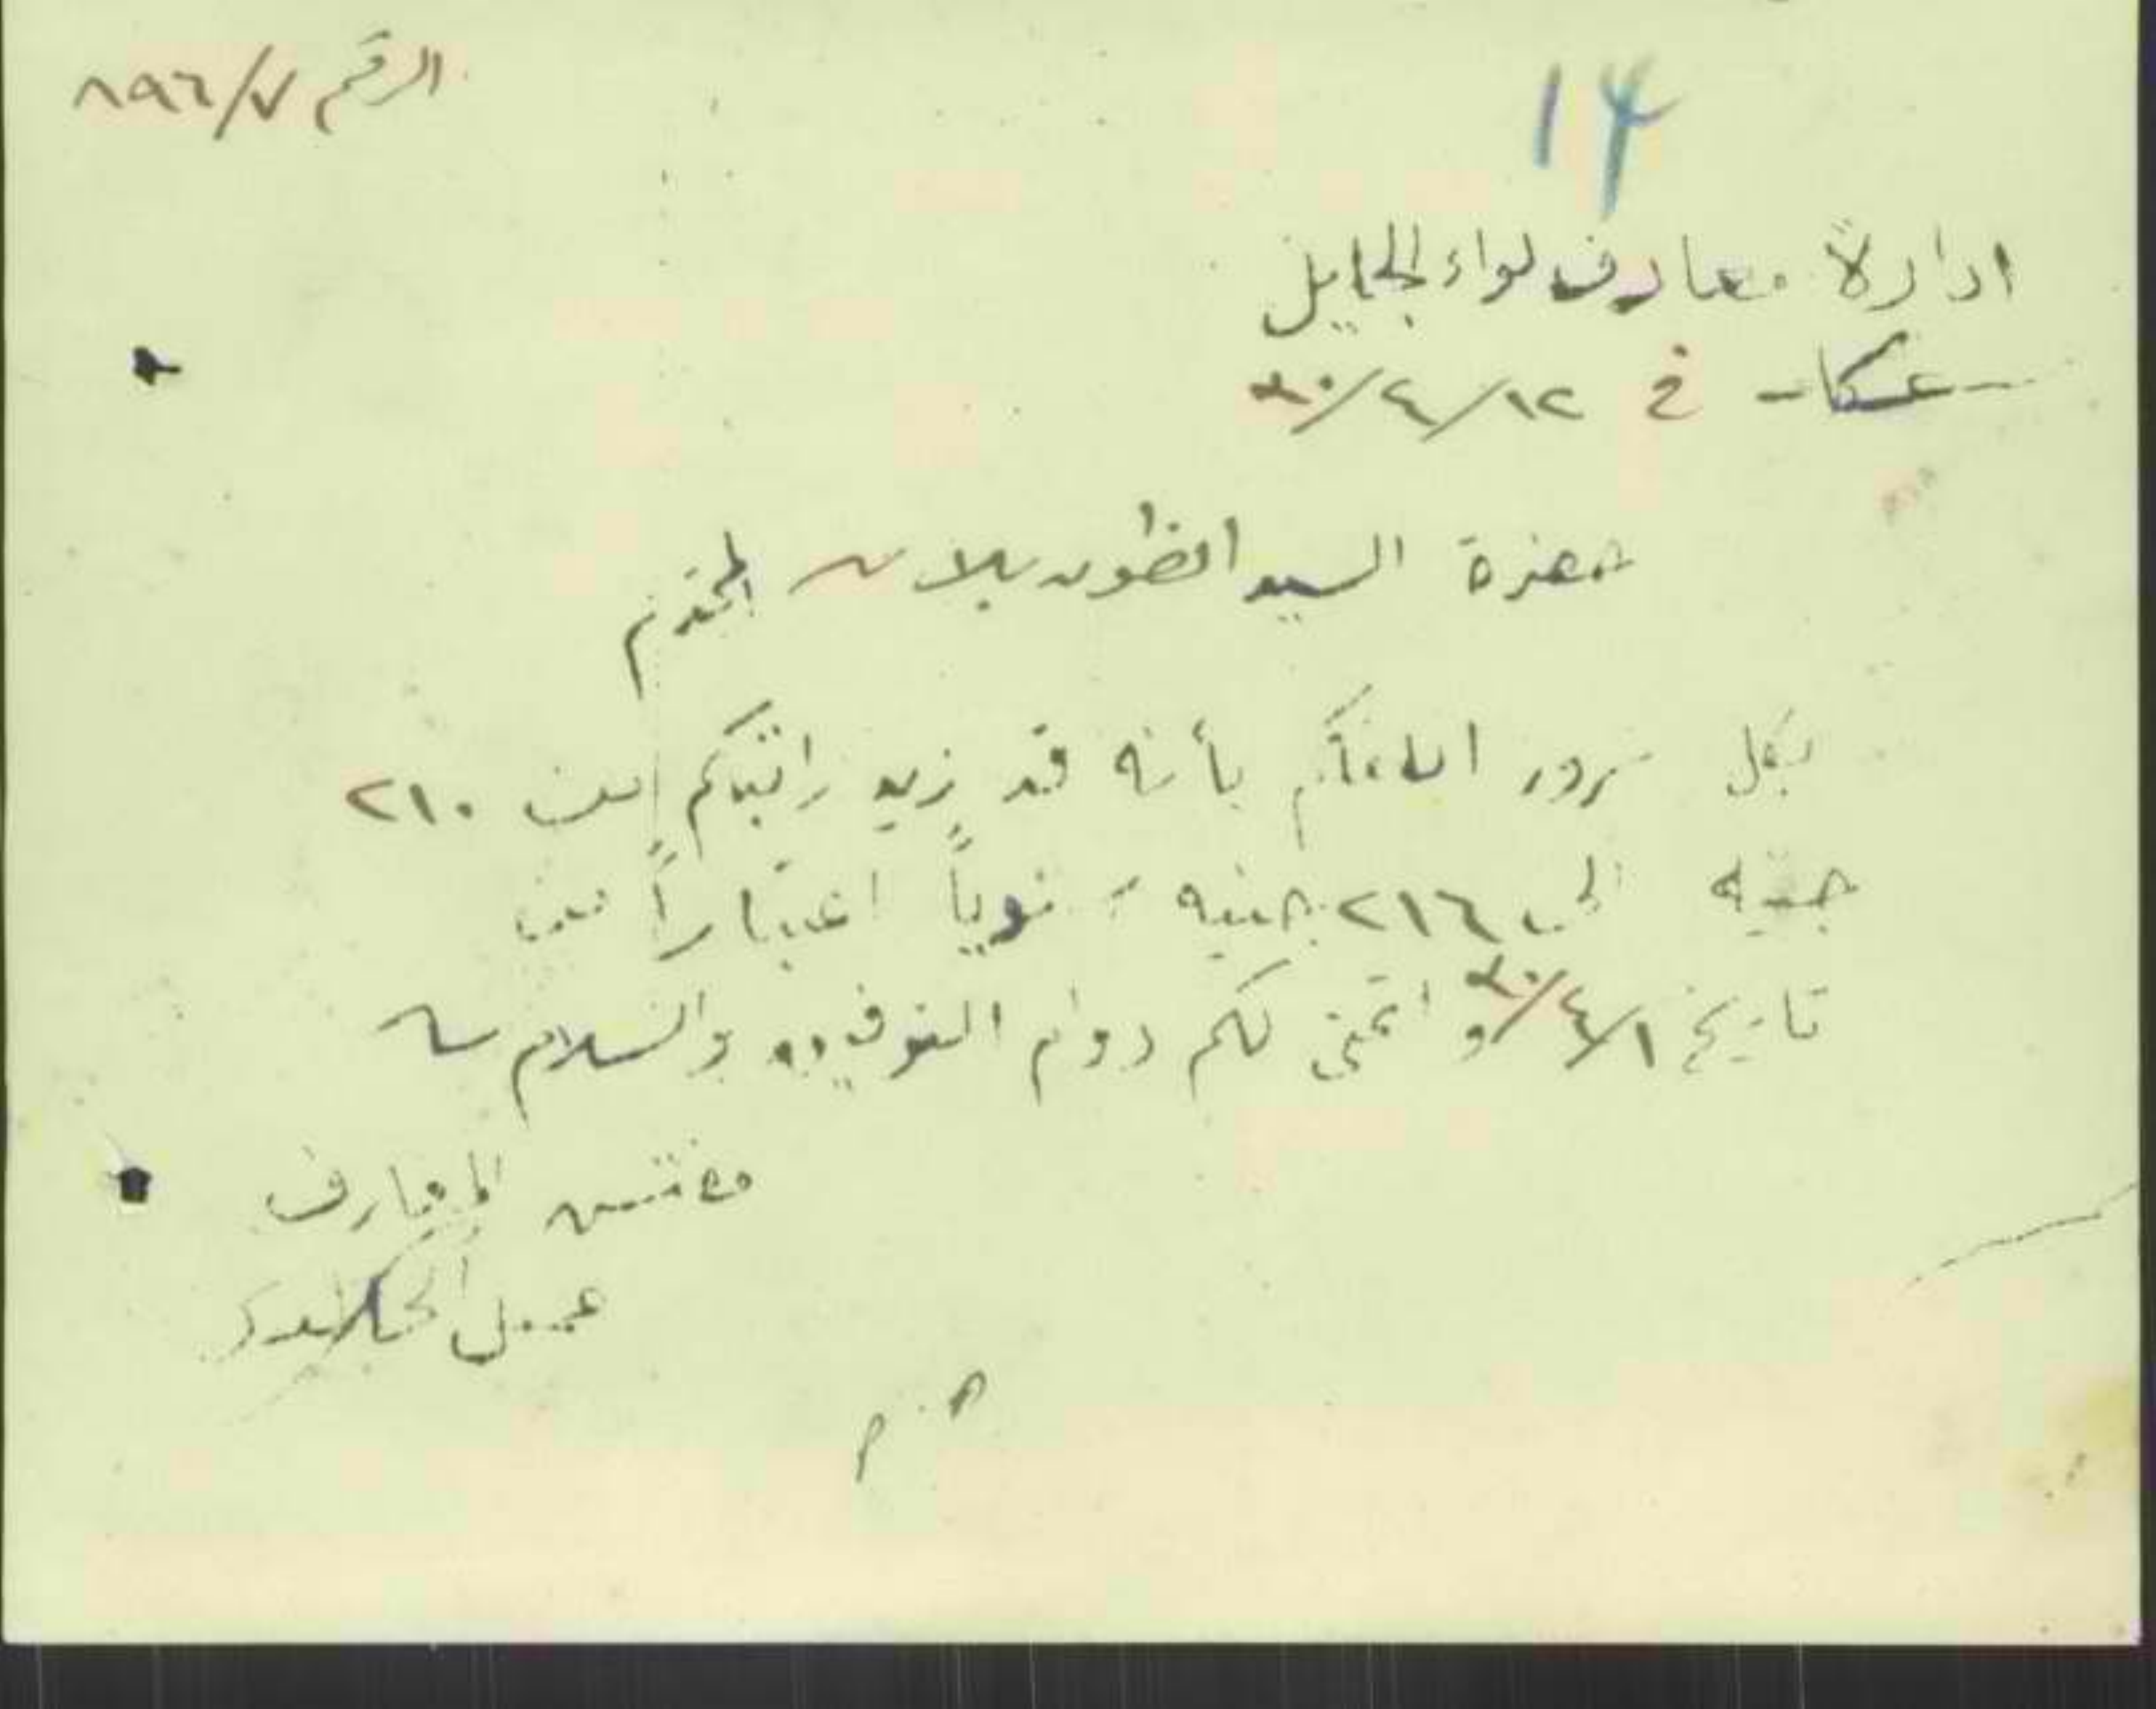 الرقم ٧/٨٩٦
١٣
ادارة معارف لواء الجليل
عكا - في ١٢/٤/٣٠
حضرة السيد انطون بلان المحترم
بكل سرور اعلمكم بأنه قد زيد راتبكم من ٢١٠
جنيه الى ٢١٦ جنيه سنوياً اعتباراً من
تاريخ ١/٤/٣٠ واتمنى لكم دوام التوفيق والسلام
مفتش المعارف
ح.م